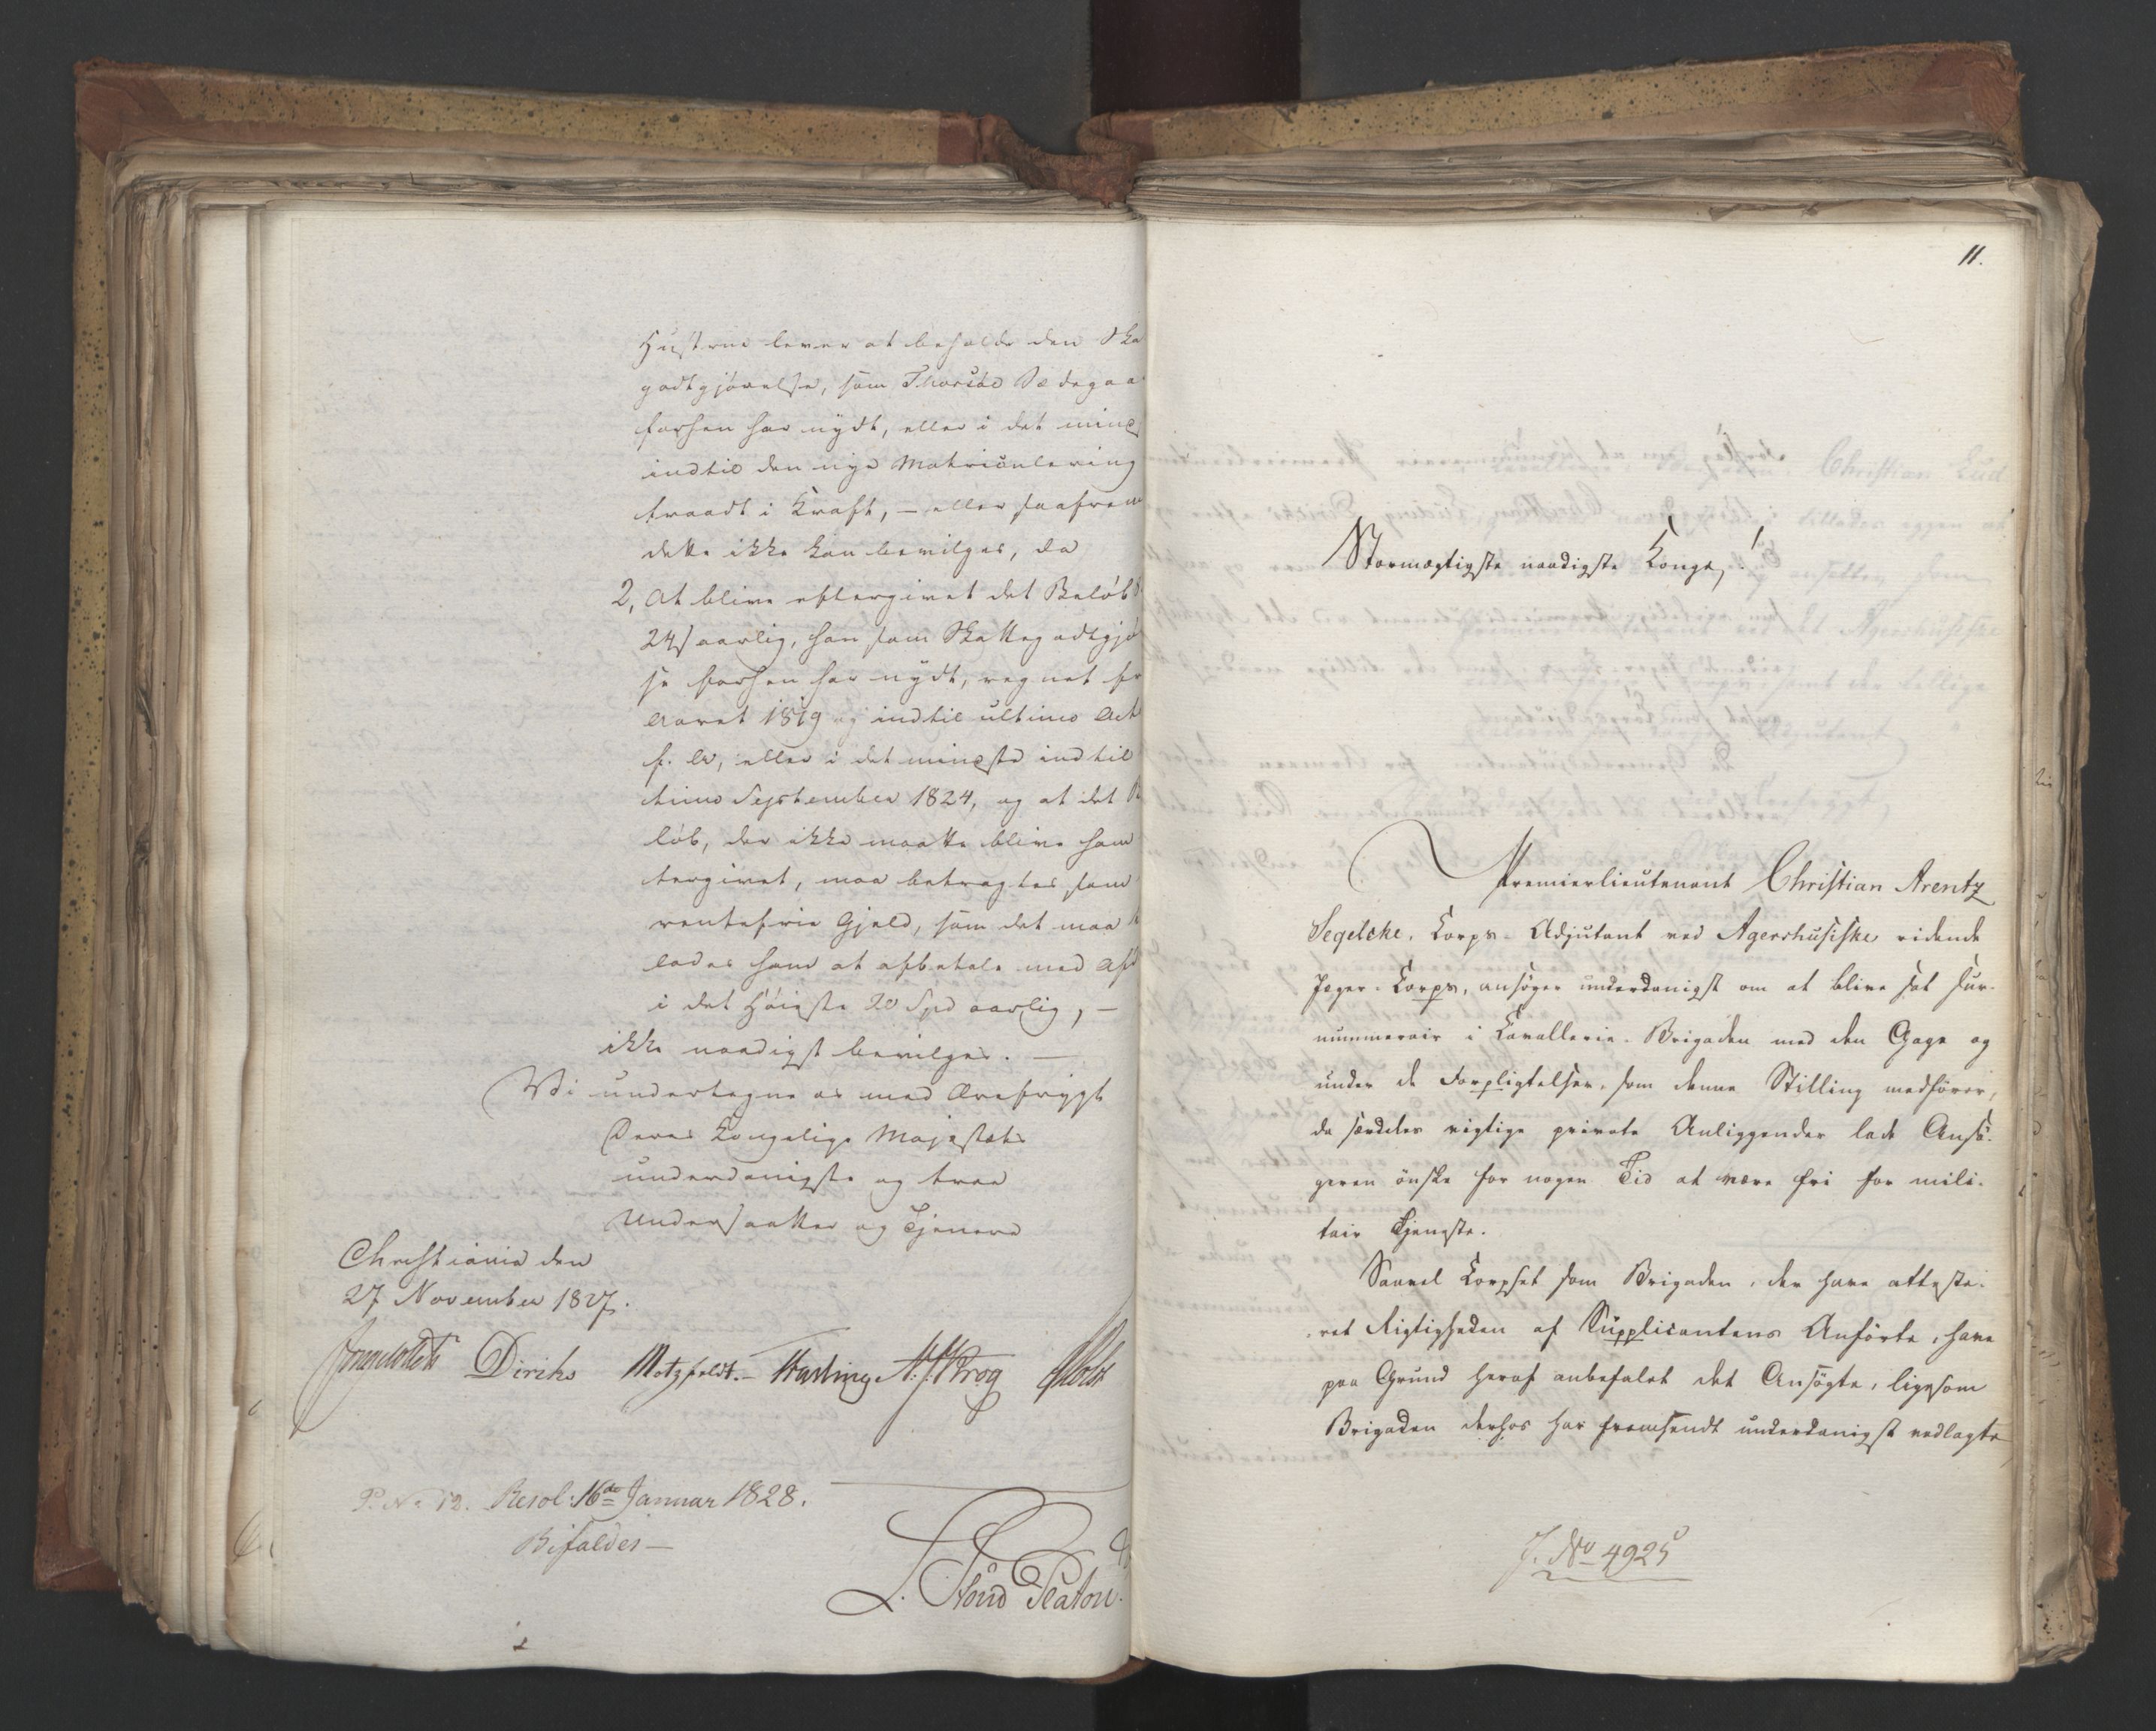 Hustrue lever at beholde den Ska
godtgjørelse, som Thorsøe Sædegaa
forhen har nydt, eller i det minds
indtil den nye Matriculering
traadt i Kraft, – eller saafrem
dette ikke kan bevilges, da
2, At blive eftergivet det Beløb
24 s aarlig, han som Skattegodtgjø
se forhen har nydt, regnet fr
Aaret 1819 og indtil ultimo Oct
f. A., eller i det mindste indtil
timo September 1824, og at det B
løb, der ikke maatte blive ham
tergivet, maa betragtes som
rentefrie Gjeld, som det maa
lades ham at afbetale med Afd
i det Høieste 20 Spd aarlig, –
ikke naadigst bevilges. –
Vi undertegne os med Ærefrygt
Deres Kongelige Majestæts
underdanigste og troe
Undersaatter og Tjenere
Christiania den
27 November 1827.
Diriks Motzfeldt. – Fasting Krog Holst
P. No 12. Resol: 16de Januar 1828.
Bifaldes –
L. Platou.
11.
Stormægtigste naadigste Konge!
Premierlieutenant Christian Arentz
Segelcke, Corps-Adjutant ved Agershusiske ridende
Jæger-Corps, ansøger underdanigst om at blive sat sur-
nummerair i Cavallerie-Brigaden med den Gage og
under de Forpligtelser, som denne Stilling medfører,
da særdeles vigtige private Anliggender lade Ansø-
geren ønske for nogen Tid at være fri for mili-
tair Tjeneste.
Saavel Corpset som Brigaden, der have atteste-
ret Rigtigheden af Supplicantens Anførte, have
paa Grund heraf anbefalet det Ansøgte, ligesom
Brigaden derhos har fremsendt underdanigst vedlagte
J. No 4925